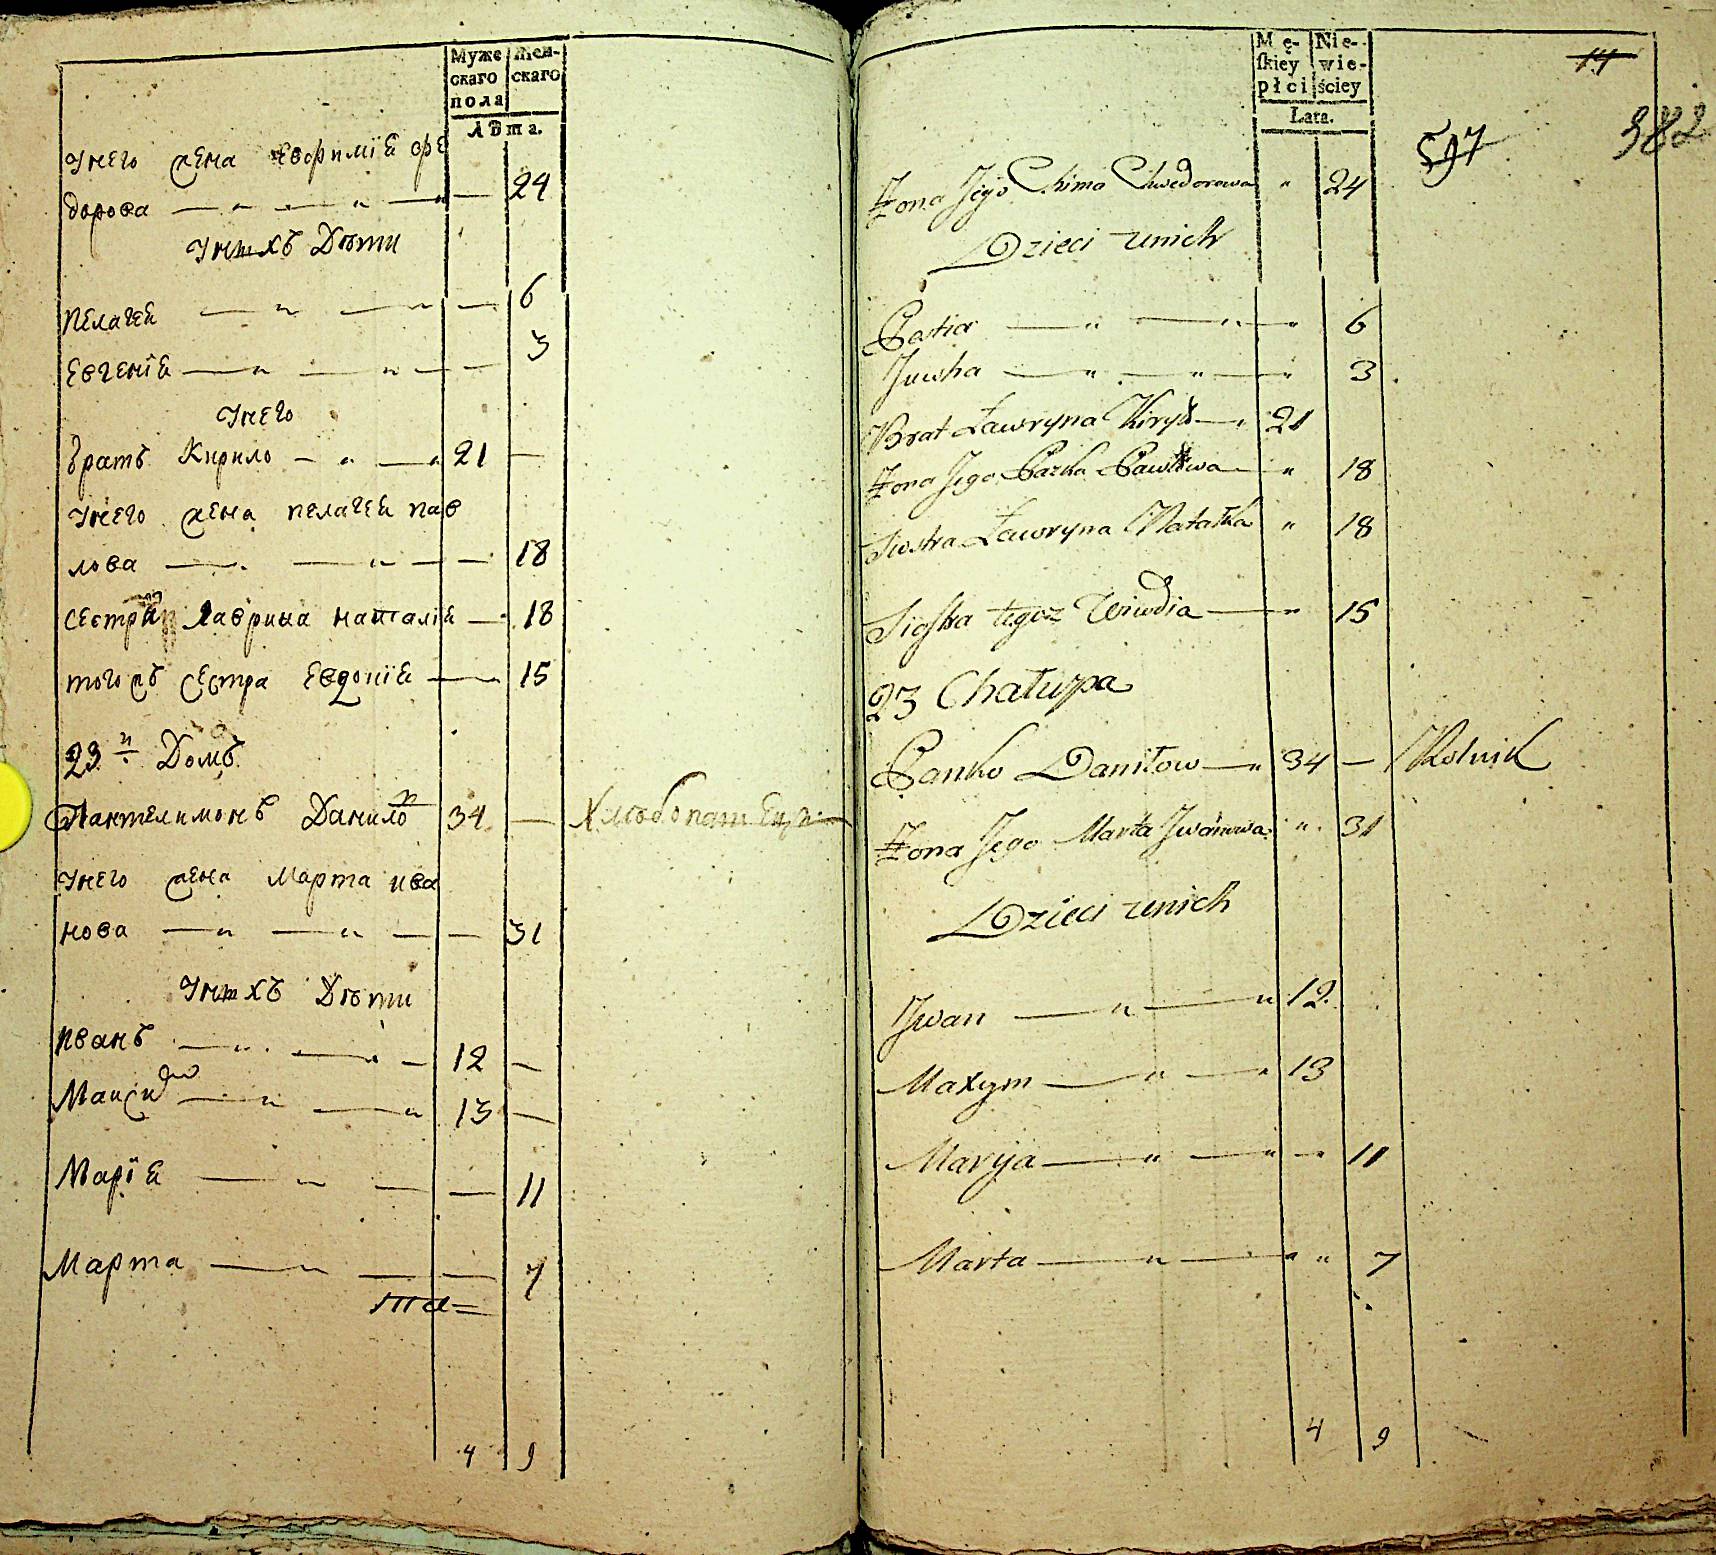 Муже
скаго
пола
Жен-
скаго
Лѣта.
Унего жена Евфимiѣ Фе
дорова — „ — „ — — 24
Унихъ Дѣти
Пелагеѣ — „ — „ — 6
Евгенiѣ — „ — „ — — 3
Унего
братъ Кирило — „ — „ 21 —
Унего жена пелагеѣ пав
лова — „ — „ — — 18
сестра Лаврина наталiѣ — „ 18
тогожъ сестра Евдокiѣ — 15
23й Домъ
Пантелимонъ Данилов 34 —
Унего жена Марта ива
нова — „ — „ — — 31
Унихъ Дѣти
Иванъ — „ — „ — 12 —
Максим — „ — „ 13 —
Марiѣ — „ — — 11
Марта — „ — — 7
4 9
Mę-
ſkiey
płci
Nie-
wie-
ściey
Lata.
14
597
382
Żona Jego Chima Chwedorowa „ 24
Dzieci unich
Pastia — „ — „ — „ 6
Juwha — „ — „ — „ 3
Brat Ławryna Kiryło — „ 21
Żona Jego Pazka Pawłowa — „ 18
Siostra Ławryna Natałka „ 18
Siostra tegoż Wiwdia — „ 15
23 Chałupa
Panko Daniłow — „ 34 — Rolnik
Żona Jego Marta Jwanowa „ 31
Dzieci unich
Jwan — „ — „ 12
Maxym — „ — „ 13
Maryja — „ — „ — „ 11
Marta — „ — „ „ 7
4 9